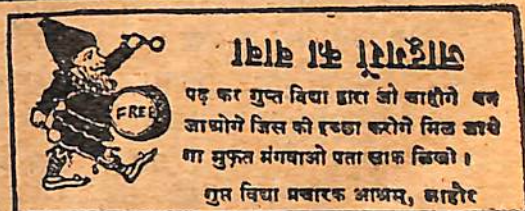 जादूगरों का बाबा
FREE
पढ़ कर गुप्त विद्या द्वारा जो चाहोगे बन
जाओगे जिस की इच्छा करोगे मिल जाये
गा मुफ़त मंगवाओ पता साफ़ लिखो ।
गुप्त विद्या प्रचारक आश्रम, लाहोर